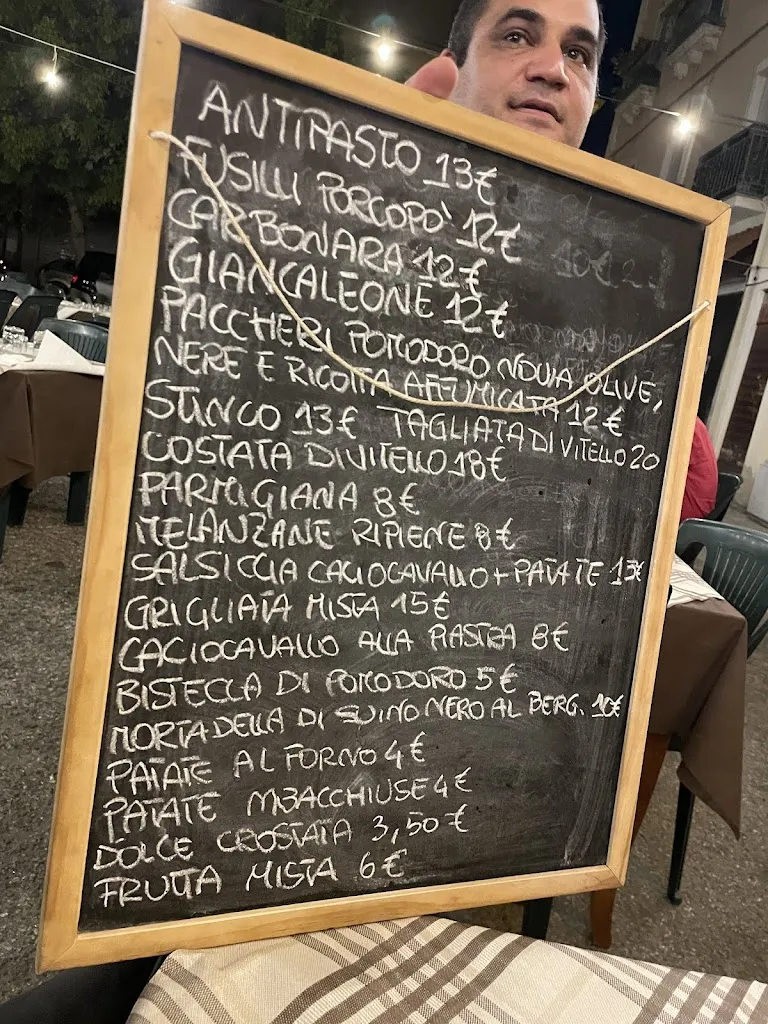 ANTIPASTO 13€
FUSILLI PORCOPO' 12€
CARBONARA 12€
GIANCALEONE 12€
PACCHERI POMODORO NDUIA OLIVE,
NERE E RICOTTA AFFUMICATA 12€
STINCO 13€ TAGLIATA DI VITELLO 20
COSTATA DI VITELLO 18€
PARMIGIANA 8€
MELANZANE RIPIENE 8€
SALSICCIA CACIOCAVALLO + PATATE 13€
GRIGLIATA MISTA 15€
CACIOCAVALLO ALLA PIASTRA 8€
BISTECCA DI POMODORO 5€
MORTADELLA DI SUINO NERO AL BERG. 10€
PATATE AL FORNO 4€
PATATE MBACCHIUSE 4€
DOLCE CROSTATA 3,50€
FRUTTA MISTA 6€